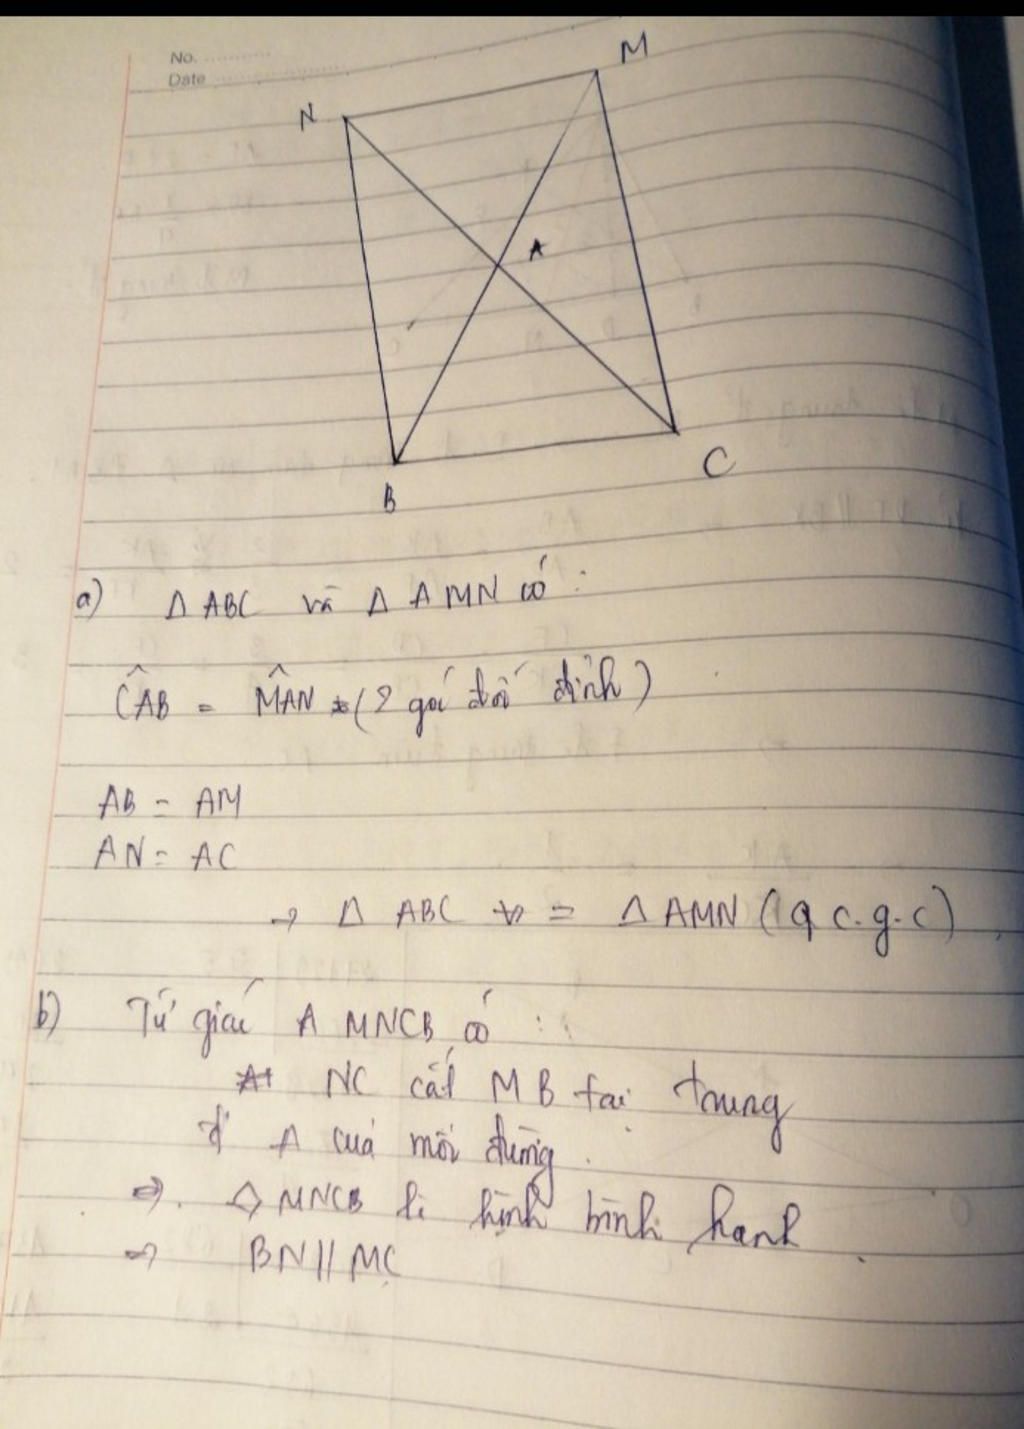 No. ............
Date ......................
M
N
A
B
C
a) Δ ABC và Δ AMN có :
ĈAB = M̂AN (2 góc đối đỉnh)
AB = AM
AN = AC
→ Δ ABC = Δ AMN ( c.g.c)
b) Tứ giác MNCB có :
NC cắt MB tại trung
đ' A của mỗi đường
⇒ ◇ MNCB là hình bình hành
⇒ BN // MC